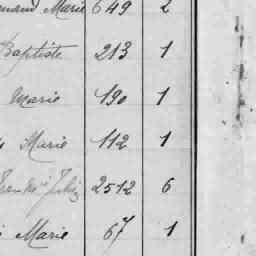 Marie 649 2
Baptiste 213 1
Marie 190 1
Marie 112 1
2512 6
Marie 67 1